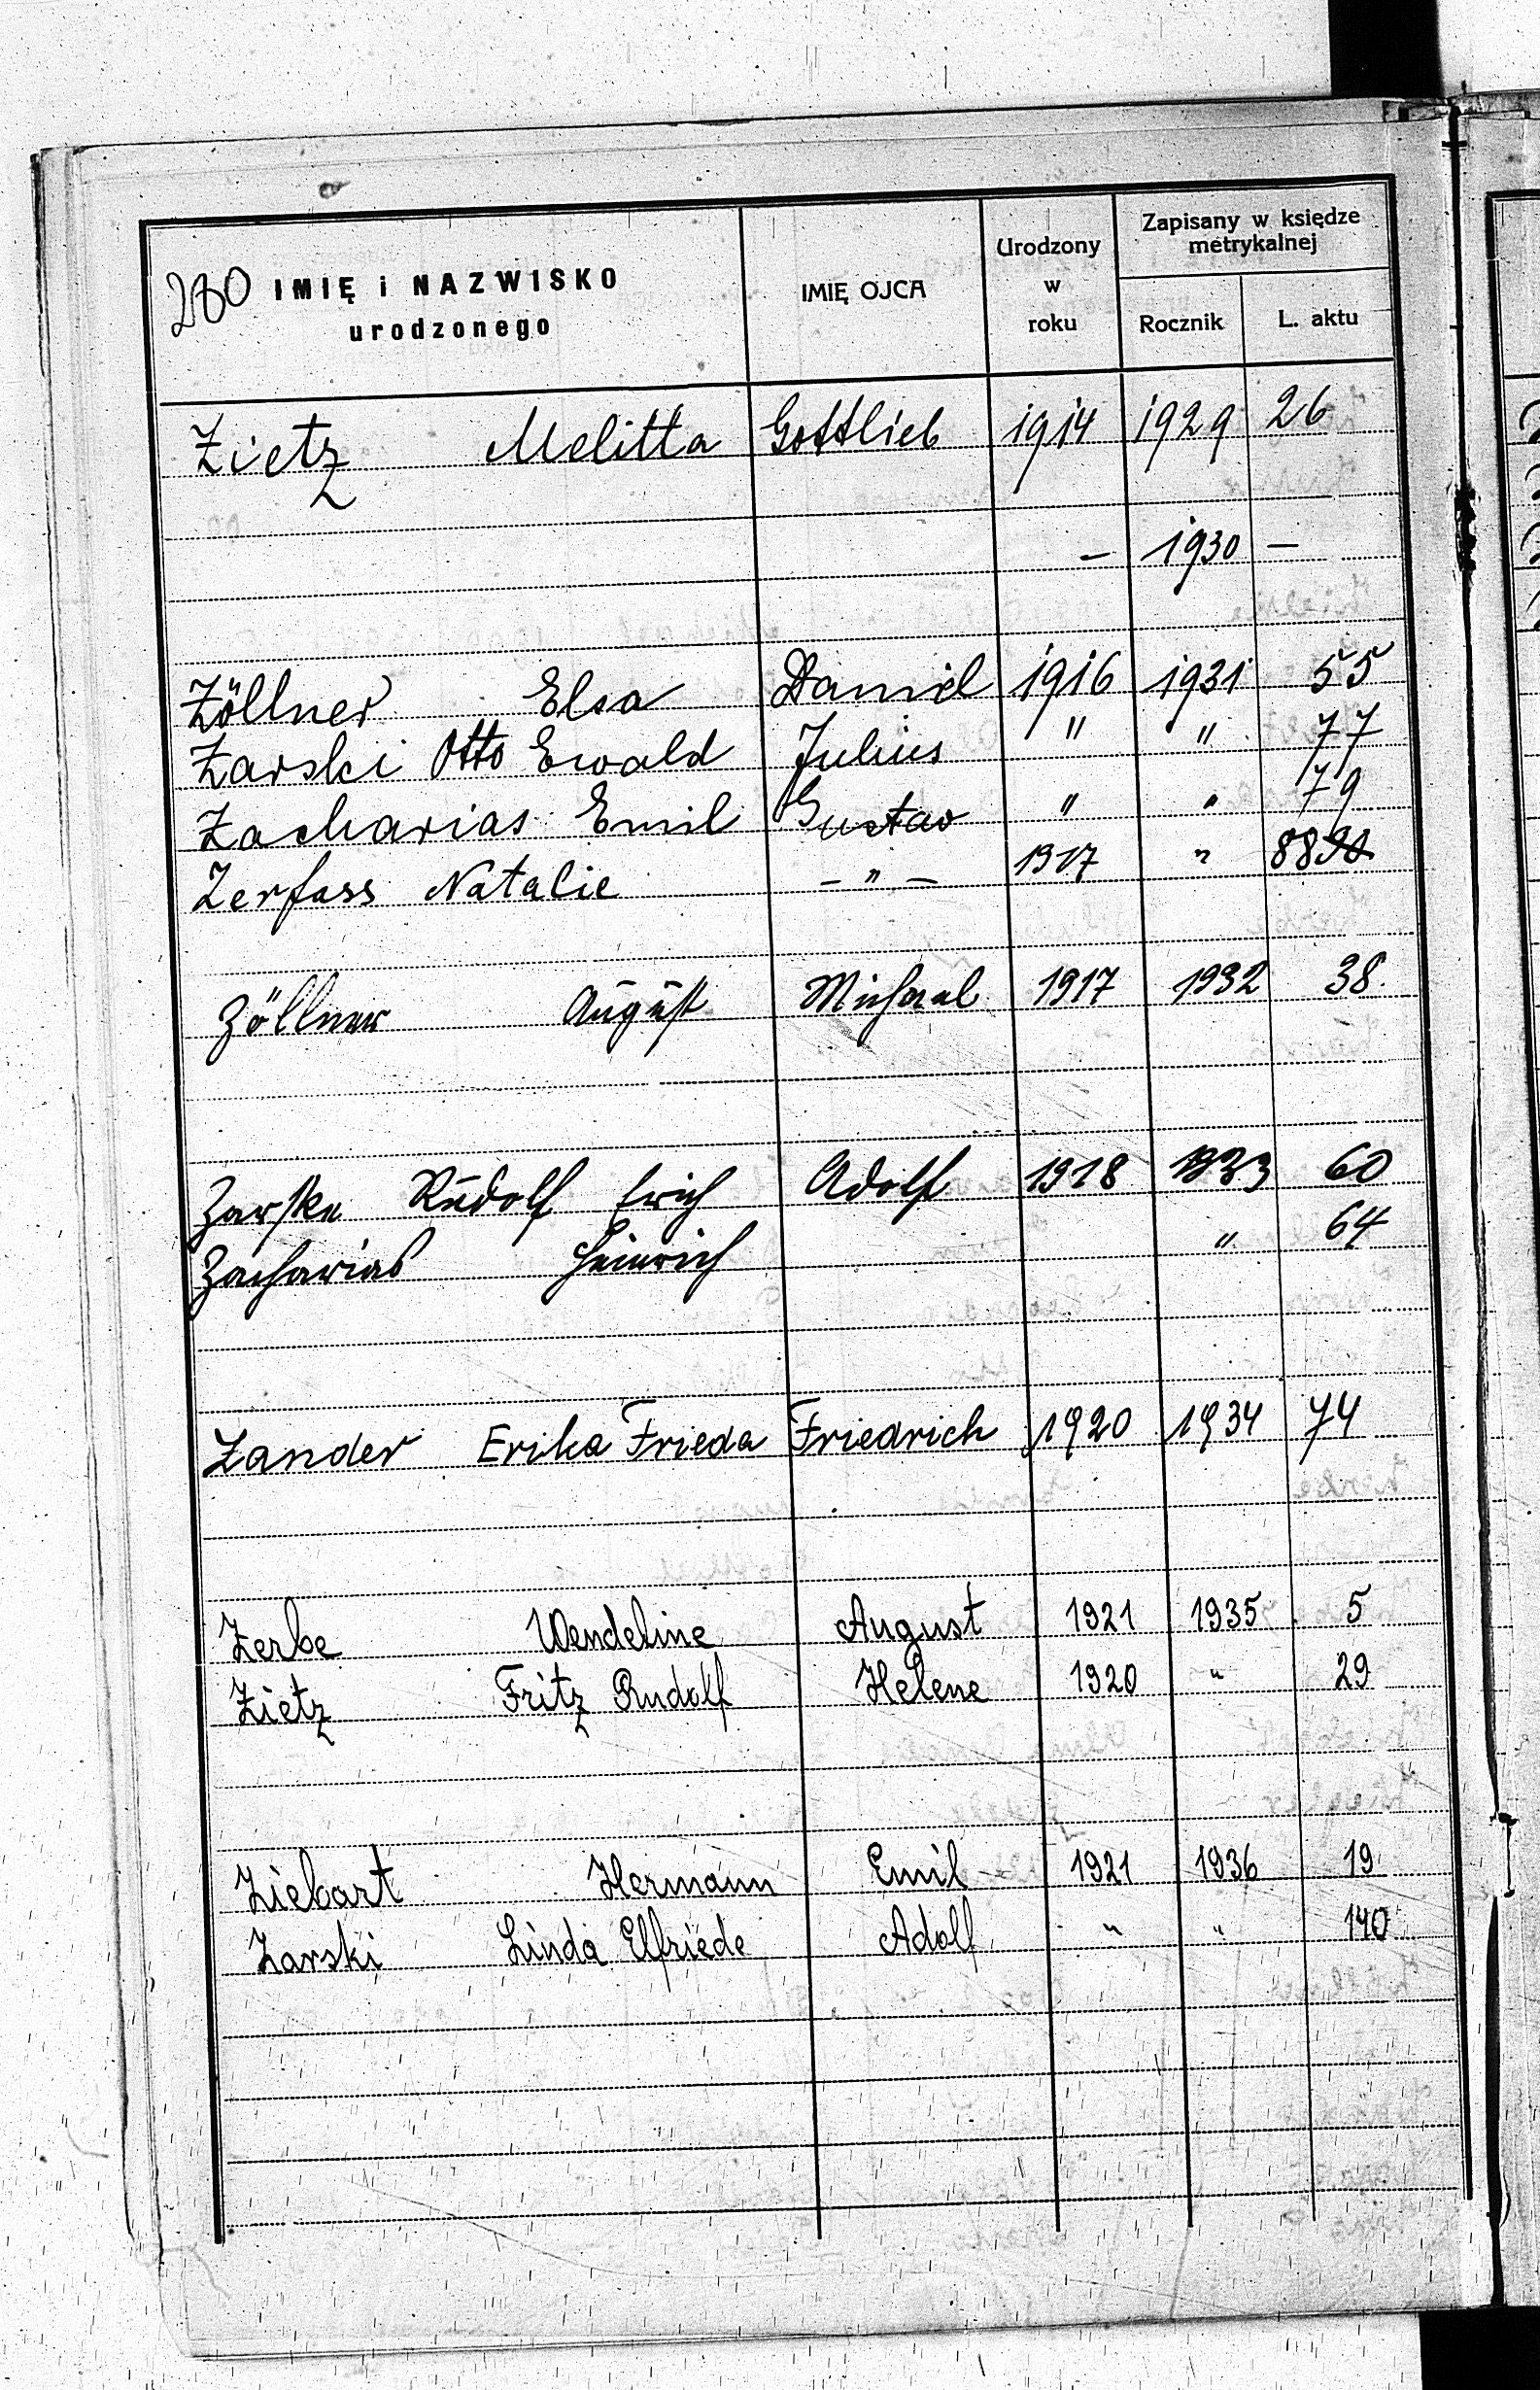 280
IMIĘ i NAZWISKO urodzonego
IMIĘ OJCA
Urodzony w roku
Zapisany w księdze metrykalnej
Rocznik L. aktu
Zietz Melitta Gottlieb 1914 1929 26
– 1930 –
Zöllner Elsa Daniel 1916 1931 55
Zarski Otto Ewald Julius " " 77
Zacharias Emil Gustav " " 79
Zerfass Natalie – " – 1917 " 88
Zöllner August Michael 1917 1932 38
Zarske Rudolf Erich Adolf 1918 1933 60
Zacharias Heinrich " 64
Zander Erika Frieda Friedrich 1920 1934 74
Zerbe Wendeline August 1921 1935 5
Zietz Fritz Rudolf Helene 1920 " 29
Ziebart Hermann Emil 1921 1936 19
Zarski Linda Elfriede Adolf " " 140